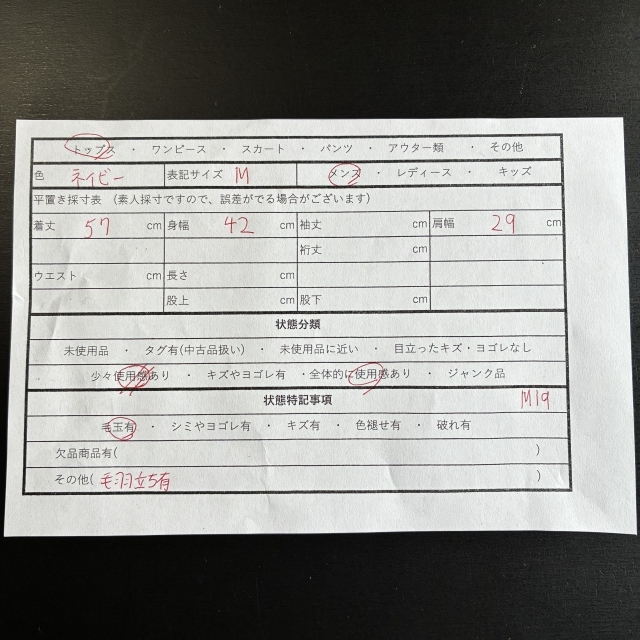 トップス ・ ワンピース ・ スカート ・ パンツ ・ アウター類 ・ その他
色 ネイビー 表記サイズ M メンズ ・ レディース ・ キッズ
平置き採寸表 (素人採寸ですので、誤差がでる場合がございます)
着丈 57 cm 身幅 42 cm 袖丈 cm 肩幅 29 cm
裄丈 cm
ウエスト cm 長さ cm
股上 cm 股下 cm
状態分類
未使用品 ・ タグ有(中古品扱い) ・ 未使用品に近い ・ 目立ったキズ・ヨゴレなし
少々使用感あり ・ キズやヨゴレ有 ・全体的に使用感あり ・ ジャンク品
状態特記事項 M19
毛玉有 ・ シミやヨゴレ有 ・ キズ有 ・ 色褪せ有 ・ 破れ有
欠品商品有( )
その他( 毛羽立ち有 )